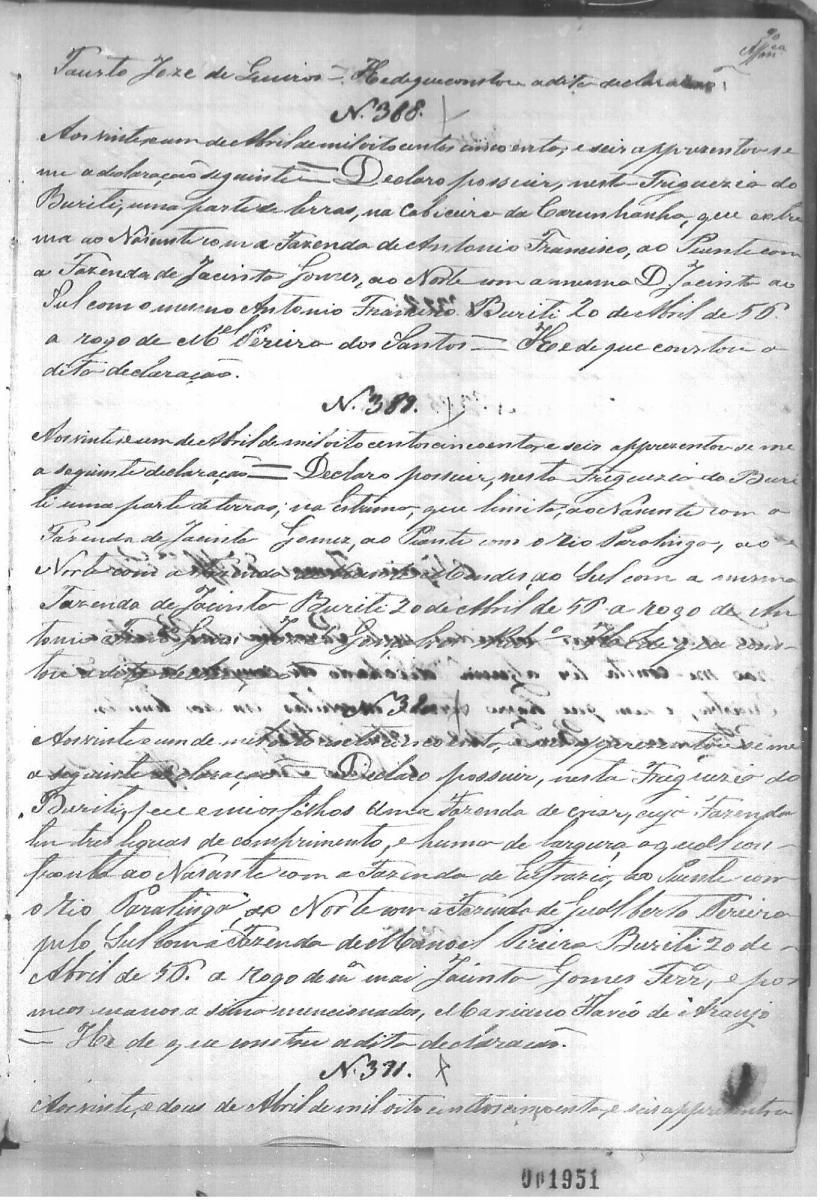 Fausto Joze de Queiros = He de que constou a dita declaração
N. 388.
Aos vinte e um de Abril de mil oito centos cincoenta, e seis apprezentou-se
me a declaração seguinte = Declaro possuir, nesta Freguezia do
Buriti, uma parte de terras, na cabiceira da Carunhanha, que extre
ma ao Nasante com a Fazenda de Antonio Francisco, ao Puente com
a Fazenda de Jacinta Gomes, ao Norte com a mesma D. Jacinta ao
Sul com o mesmo Antonio Francisco Buriti 20 de Abril de 56.
a rogo de Mel Pereira dos Santos = He de que constou a
dita declaração.
N. 389.
Aos vinte e um de Abril de mil oito centos cincoenta, e seis apprezentou-se me
a seguinte declaração = Declaro possuir, nesta Freguezia do Buri
ti uma parte de terras; na que limita, ao Nasante com a
Fazenda de Jacinta Gomez, ao Puente com o rio Paratinga, ao
Norte com a Fazenda de Mendes, ao Sul com a mesma
Fazenda de Jacinta Buriti 20 de Abril de 56 a rogo de An
tonio Joze He de que cons
tou a dita
N. 3
Aos vinte e um de mil oito centos cincoenta, e apprezentou-se me
a seguinte declaração = Declaro possuir, nesta Freguezia do
Buriti, eu e meos filhos uma Fazenda de criar, cuja Fazenda
tem tres leguas de comprimento, e huma de largura, a qual con
fronta ao Nasante com a Fazenda de ao Puente com
o rio Paratinga, ao Norte com a Fazenda de Gualberto Pereira
pelo Sul com a Fazenda de Manoel Pereira Buriti 20 de
Abril de 56. a rogo de ma mai Jacinta Gomes Ferra, e por
meos manos a sima mencionados, Mariano Flavio de Araujo
= He de que constou a dita declaração.
N. 391.
Aos vinte, e dous de Abril de mil oito centos cincoenta, e seis apprezentou
001951